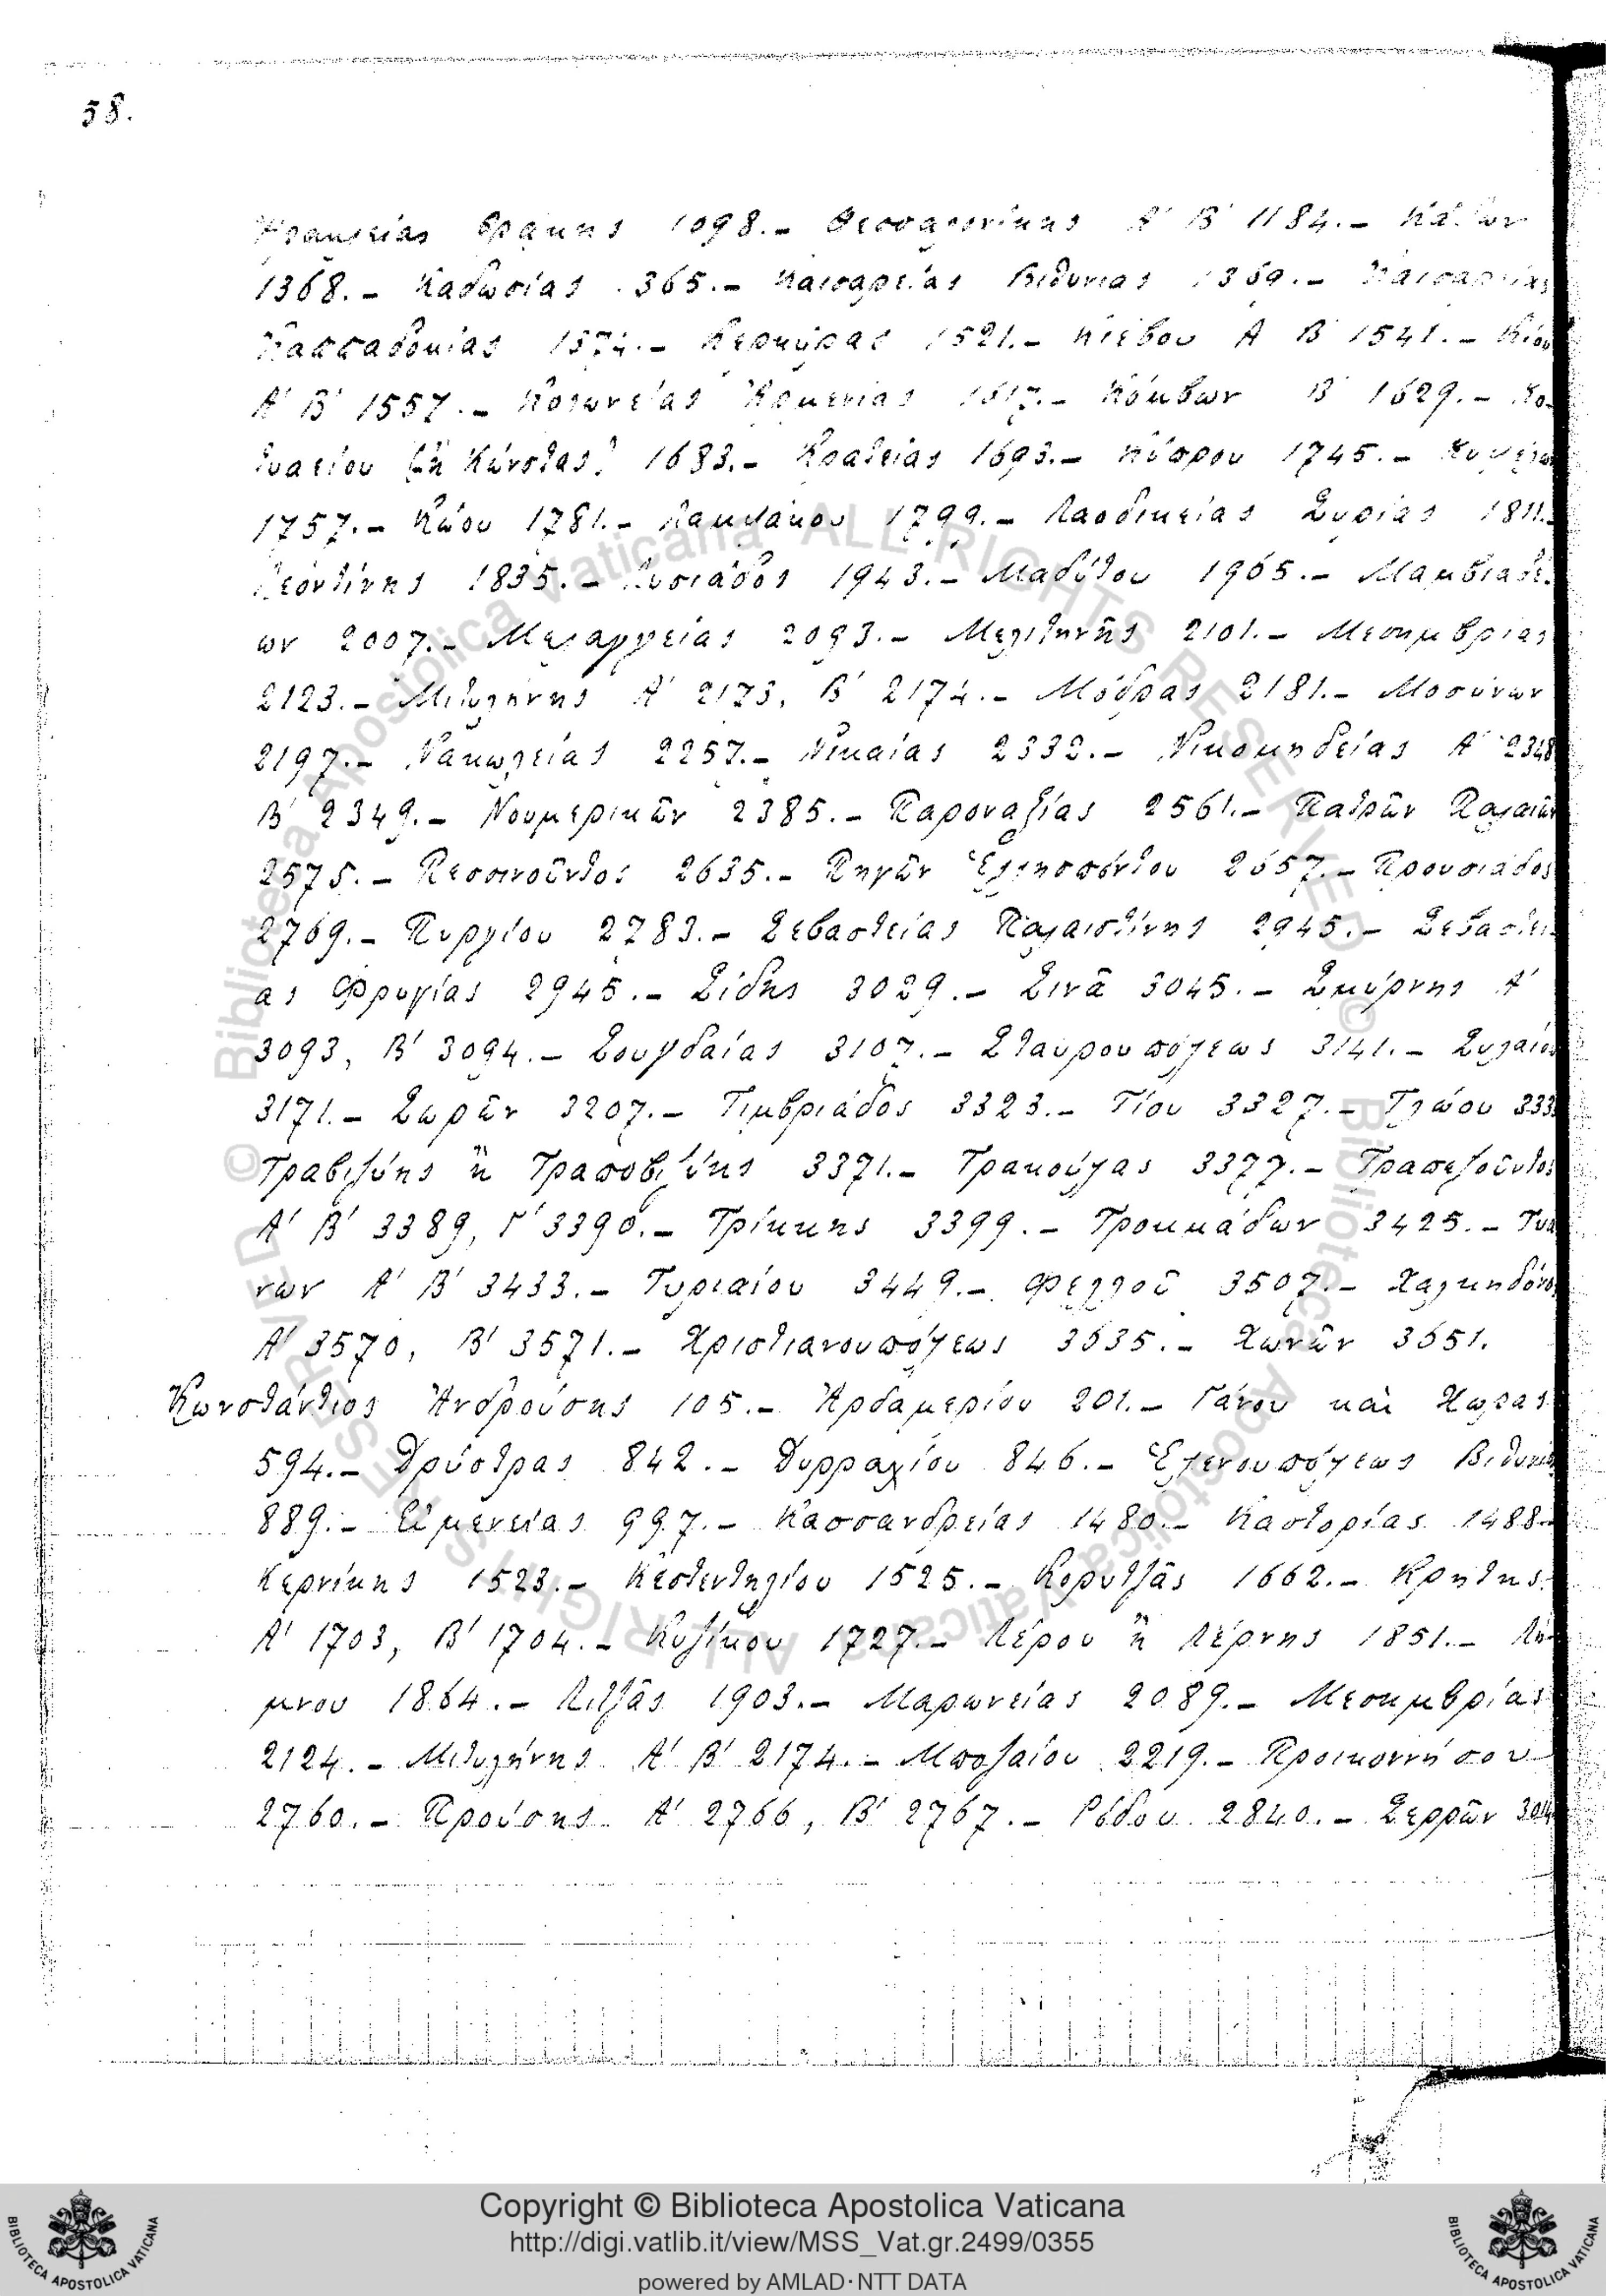 58.
Ἡρακλείας Θράκης 1098.- Θεσσαλονίκης Α' Β' 1184.-
1368.- Καδωσίας 1365.- Καισαρείας Βιθυνίας 1369.- Καισαρείας
Καππαδοκίας 1374.- Κερκύρας 1521.- Κιέβου Α' Β' 1541.- Κίου
Α' Β' 1557.- Κολωνείας Ἀρμενίας 1617.- Κόμβων Β' 1629.- Κο-
τυαείου ἢ 1683.- Κρατείας 1693.- Κύπρου 1745.- Κυψέλων
1757.- Κώου 1781.- Λαμψάκου 1799.- Λαοδικείας Συρίας 1811.-
Λεοντίνης 1835.- Λυσιάδος 1943.- Μαδύτου 1965.- Μαμβιαδε-
ων 2007.- Μελαγγείας 2093.- Μελιτηνῆς 2101.- Μεσημβρίας
2123.- Μιτυλήνης Α' 2173, Β' 2174.- Μόδρας 2181.- Μοσύνων
2197.- Νακωλείας 2257.- Νικαίας 2332.- Νικομηδείας Α' 2348
Β' 2349.- Νουμερικῶν 2385.- Παροναξίας 2561.- Πατρῶν Παλαιῶν
2575.- Πεσσινοῦντος 2635.- Πηγῶν Ἑλλησπόντου 2657.- Προυσιάδος
2769.- Πυργίου 2783.- Σεβαστείας Παλαιστίνης 2945.- Σεβαστεί-
ας Φρυγίας 2945.- Σίδης 3029.- Σινᾶ 3045.- Σμύρνης Α'
3093, Β' 3094.- Σουγδαίας 3107.- Σταυρουπόλεως 3141.- Συλαίου
3171.- Σωρῶν 3207.- Τιμβριάδος 3323.- Τίου 3327.- Τλώου 333
Τραβιζύης ἢ Τραποβιζύης 3371.- Τρακούλας 3377.- Τραπεζοῦντος
Α' Β' 3389, Γ' 3390.- Τρίκκης 3399.- Τροκμάδων 3425.- Τυά-
νων Α' Β' 3433.- Τυριαίου 3449.- Φελλοῦ 3507.- Χαλκηδόνος
Α' 3570, Β' 3571.- Χριστιανουπόλεως 3635.- Χωνῶν 3651.
Κωνστάντιος Ἀνδρούσης 105.- Ἀρδαμερίου 201.- Γάνου καὶ Χώρας
594.- Δρύστρας 842.- Δυρραχίου 846.- Ἑλενουπόλεως Βιθυνίας
889.- Εὐμενείας 997.- Κασσανδρείας 1480.- Καστορίας 1488.-
Κερνίκης 1523.- Κεστεντηλίου 1525.- Κορυτζᾶς 1662.- Κρήτης
Α' 1703, Β' 1704.- Κυζίκου 1727.- Λέρου ἢ Λέρνης 1851.- Λή-
μνου 1864.- Λιτζᾶς 1903.- Μαρωνείας 2089.- Μεσημβρίας
2124.- Μιτυλήνης Α' Β' 2174.- Μποζαίου 2219.- Προικοννήσου
2760.- Προύσης Α' 2766, Β' 2767.- Ρόδου 2840.- Σερρῶν 3014
© Biblioteca Apostolica Vaticana ALL RIGHTS RESERVED
Copyright © Biblioteca Apostolica Vaticana
http://digi.vatlib.it/view/MSS_Vat.gr.2499/0355
powered by AMLAD·NTT DATA
BIBLIOTECA APOSTOLICA VATICANA
BIBLIOTECA APOSTOLICA VATICANA